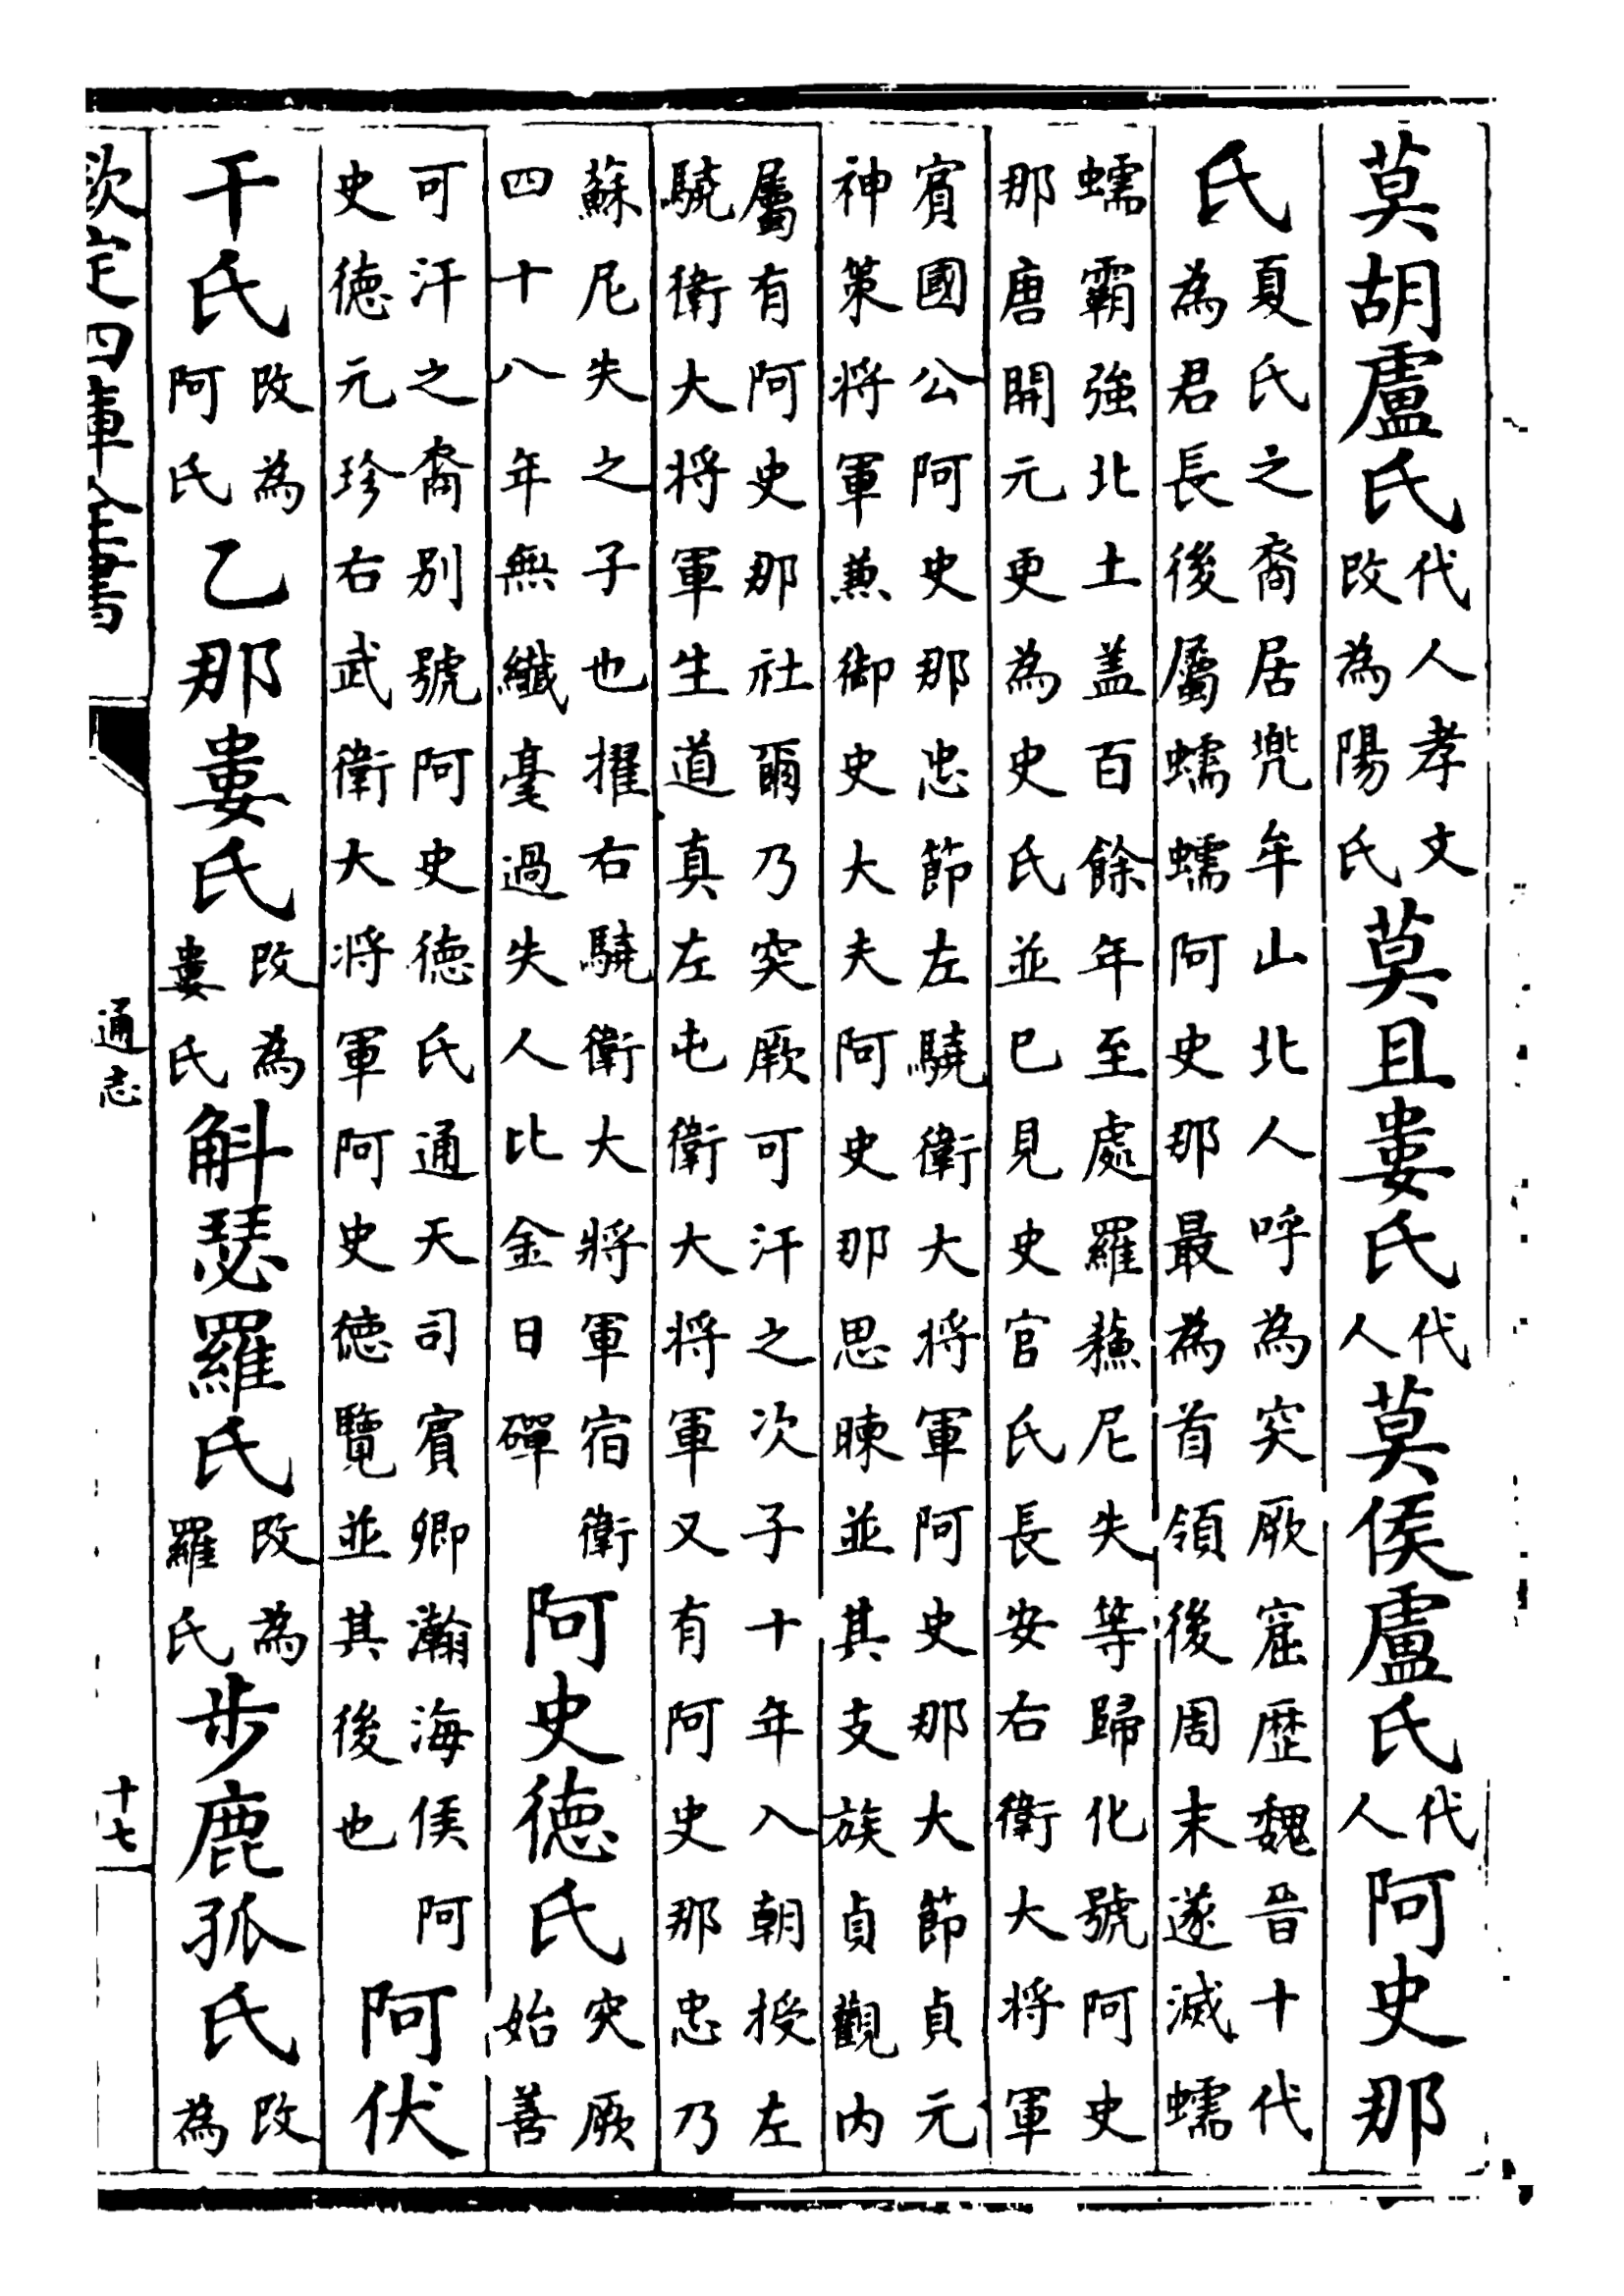 莫胡盧氏代人孝文改為陽氏莫且婁氏代人莫侯盧氏代人阿史那
氏夏氏之裔居兜牟山北人呼為突厥窟歴魏晉十代
為君長後屬蠕蠕阿史那最為首領後周末遂滅蠕
蠕霸強北土盖百餘年至處羅蘓尼失等歸化號阿史
那唐開元更為史氏並已見史官氏長安右衛大将軍
賔國公阿史那忠節左驍衛大将軍阿史那大節貞元
神策将軍兼御史大夫阿史那思暕並其支族貞觀内
屬有阿史那社爾乃突厥可汗之次子十年入朝授左
驍衛大将軍生道真左屯衛大将軍又有阿史那忠乃
蘇尼失之子也擢右驍衛大將軍宿衛
四十八年無纎毫過失人比金日磾
阿史徳氏突厥始善
可汗之裔别號阿史徳氏通天司賔卿瀚海侯阿
史徳元珍右武衛大将軍阿史徳覽並其後也
阿伏
干氏改為阿氏乙那婁氏改為婁氏斛瑟羅氏改為羅氏步鹿孤氏改為
欽定四庫全書
通志
十七